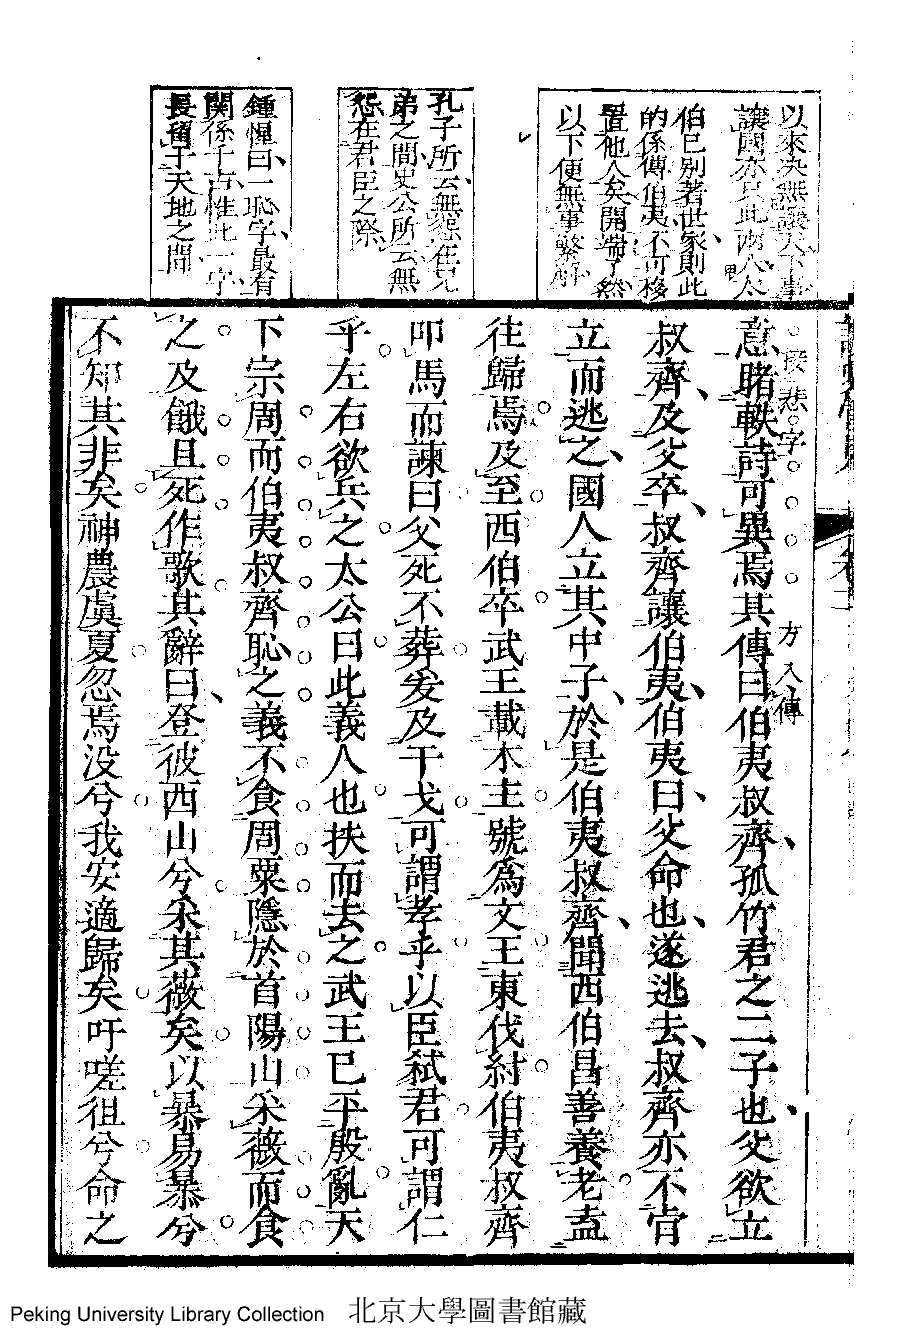 以來夾無讓天下事
讓國亦只此兩人太
伯已別著世家則此
的係傳伯夷不可移
置他人矣開端了然
以下便無事繁解
孔子所云無怨在兄
弟之間史公所云無
怨在君臣之際
鍾惺曰一恥字最有
關係千古惟此一字
長留于天地之間
接悲字
方入傳
意睹軼詩可異焉其傳曰伯夷叔齊孤竹君之二子也父欲立
叔齊及父卒叔齊讓伯夷伯夷曰父命也遂逃去叔齊亦不肯
立而逃之國人立其中子於是伯夷叔齊聞西伯昌善養老盍
往歸焉及至西伯卒武王載木主號爲文王東伐紂伯夷叔齊
叩馬而諫曰父死不葬爰及干戈可謂孝乎以臣弒君可謂仁
乎左右欲兵之太公曰此義人也扶而去之武王已平殷亂天
下宗周而伯夷叔齊恥之義不食周粟隱於首陽山采薇而食
之及餓且死作歌其辭曰登彼西山兮采其薇矣以暴易暴兮
不知其非矣神農虞夏忽焉没兮我安適歸矣吁嗟徂兮命之
Peking University Library Collection 北京大學圖書館藏